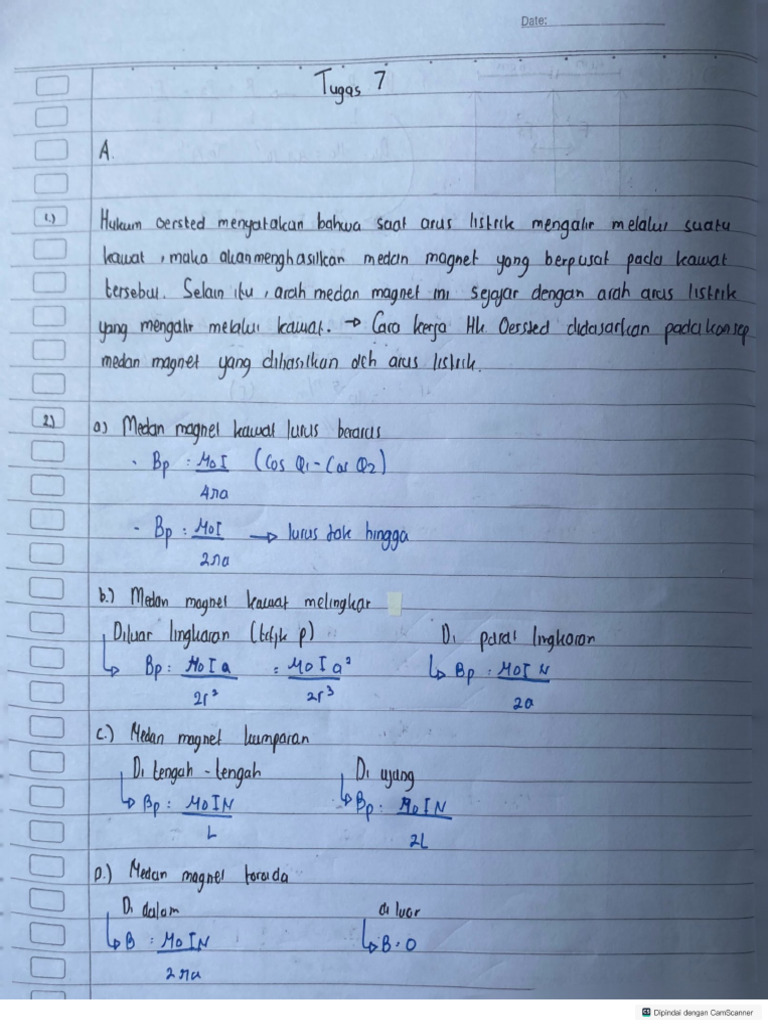 Date:
Tugas 7
A.
1.) Hukum Oersted menyatakan bahwa saat arus listrik mengalir melalui suatu
kawat, maka akan menghasilkan medan magnet yang berpusat pada kawat
tersebut. Selain itu, arah medan magnet ini sejajar dengan arah arus listrik
yang mengalir melalui kawat. → Cara kerja Hk Oersted didasarkan pada konsep
medan magnet yang dihasilkan oleh arus listrik.
2) a) Medan magnet kawat lurus berarus
- Bp : μoI / 4πa (Cos Q1 - Cos Q2)
- Bp : μoI / 2πa → lurus tak hingga
b.) Medan magnet kawat melingkar
Diluar lingkaran (titik p) Di pusat lingkaran
↳ Bp : μoIa / 2r² = μoIa² / 2r³ ↳ Bp : μoIN / 2a
c.) Medan magnet kumparan
Di tengah - tengah Di ujung
↳ Bp : μoIN / L ↳ Bp : μoIN / 2L
D.) Medan magnet toroida
Di dalam di luar
↳ B : μoIN / 2πa ↳ B = 0
CS Dipindai dengan CamScanner